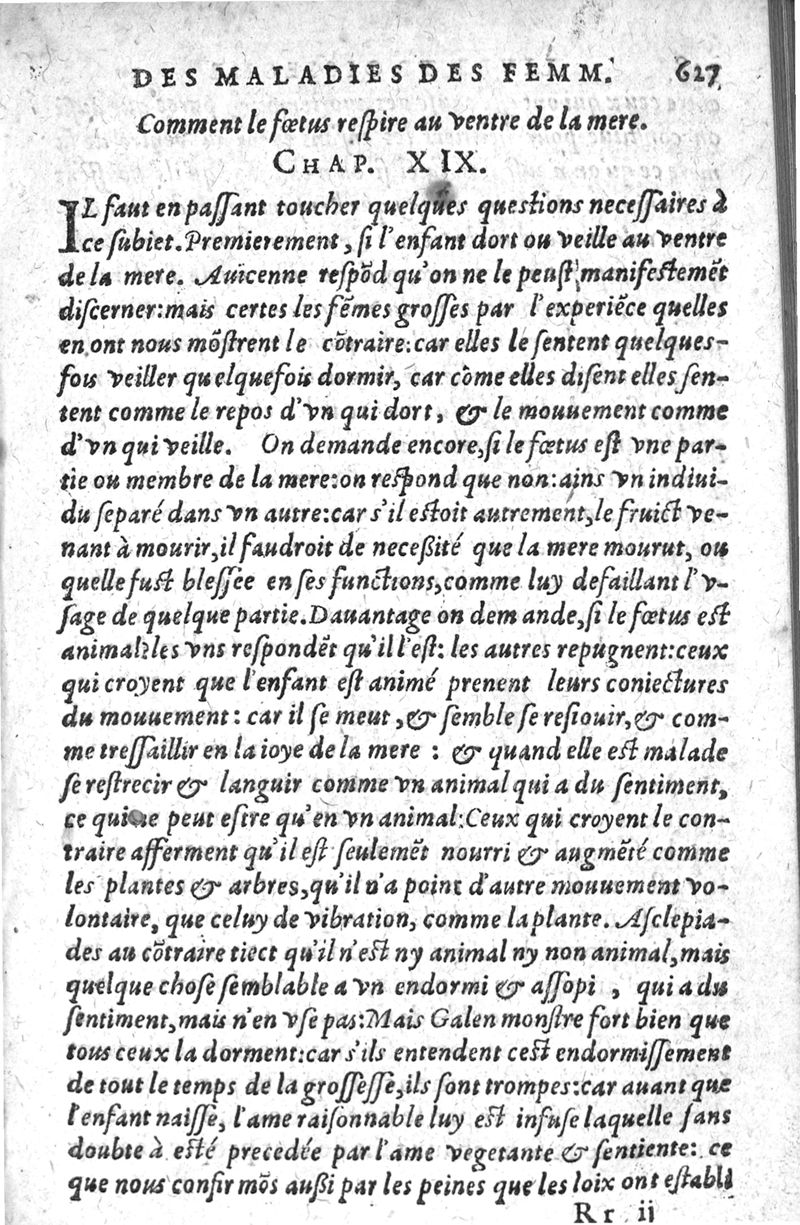 DES MALADIES DES FEMM. 627
Comment le fœtus respire au ventre de la mere.
CHAP. XIX.
IL faut en passant toucher quelques questions necessaires à
ce subiet. Premierement, si l'enfant dort ou veille au ventre
de la mere. Auicenne respõd qu'on ne le peust manifestemẽt
discerner: mais certes les fẽmes grosses par l'experiẽce quelles
en ont nous mõstrent le cõtraire: car elles le sentent quelques-
fois veiller quelquefois dormir, car cõme elles disent elles sen-
tent comme le repos d'vn qui dort, & le mouuement comme
d'vn qui veille. On demande encore, si le fœtus est vne par-
tie ou membre de la mere: on respond que non: ains vn indiui-
du separé dans vn autre: car s'il estoit autrement, le fruict ve-
nant à mourir, il faudroit de necessité que la mere mourut, ou
quelle fust blessee en ses functions, comme luy defaillant l'v-
sage de quelque partie. Dauantage on demande, si le fœtus est
animal: les vns respondẽt qu'il l'est: les autres repugnent: ceux
qui croyent que l'enfant est animé prenent leurs coniectures
du mouuement: car il se meut, & semble se resiouir, & com-
me tressaillir en la ioye de la mere : & quand elle est malade
se restrecir & languir comme vn animal qui a du sentiment,
ce qui ne peut estre qu'en vn animal: Ceux qui croyent le con-
traire afferment qu'il est seulemẽt nourri & augmẽté comme
les plantes & arbres, qu'il n'a point d'autre mouuement vo-
lontaire, que celuy de vibration, comme la plante. Asclepia-
des au cõtraire tiect qu'il n'est ny animal ny non animal, mais
quelque chose semblable a vn endormi & assopi , qui a du
sentiment, mais n'en vse pas: Mais Galen monstre fort bien que
tous ceux la dorment: car s'ils entendent cest endormissement
de tout le temps de la grossesse, ils sont trompes: car auant que
l'enfant naisse, l'ame raisonnable luy est infuse laquelle sans
doubte à esté precedée par l'ame vegetante & sentiente: ce
que nous confirmõs aussi par les peines que les loix ont establi
Rr ii